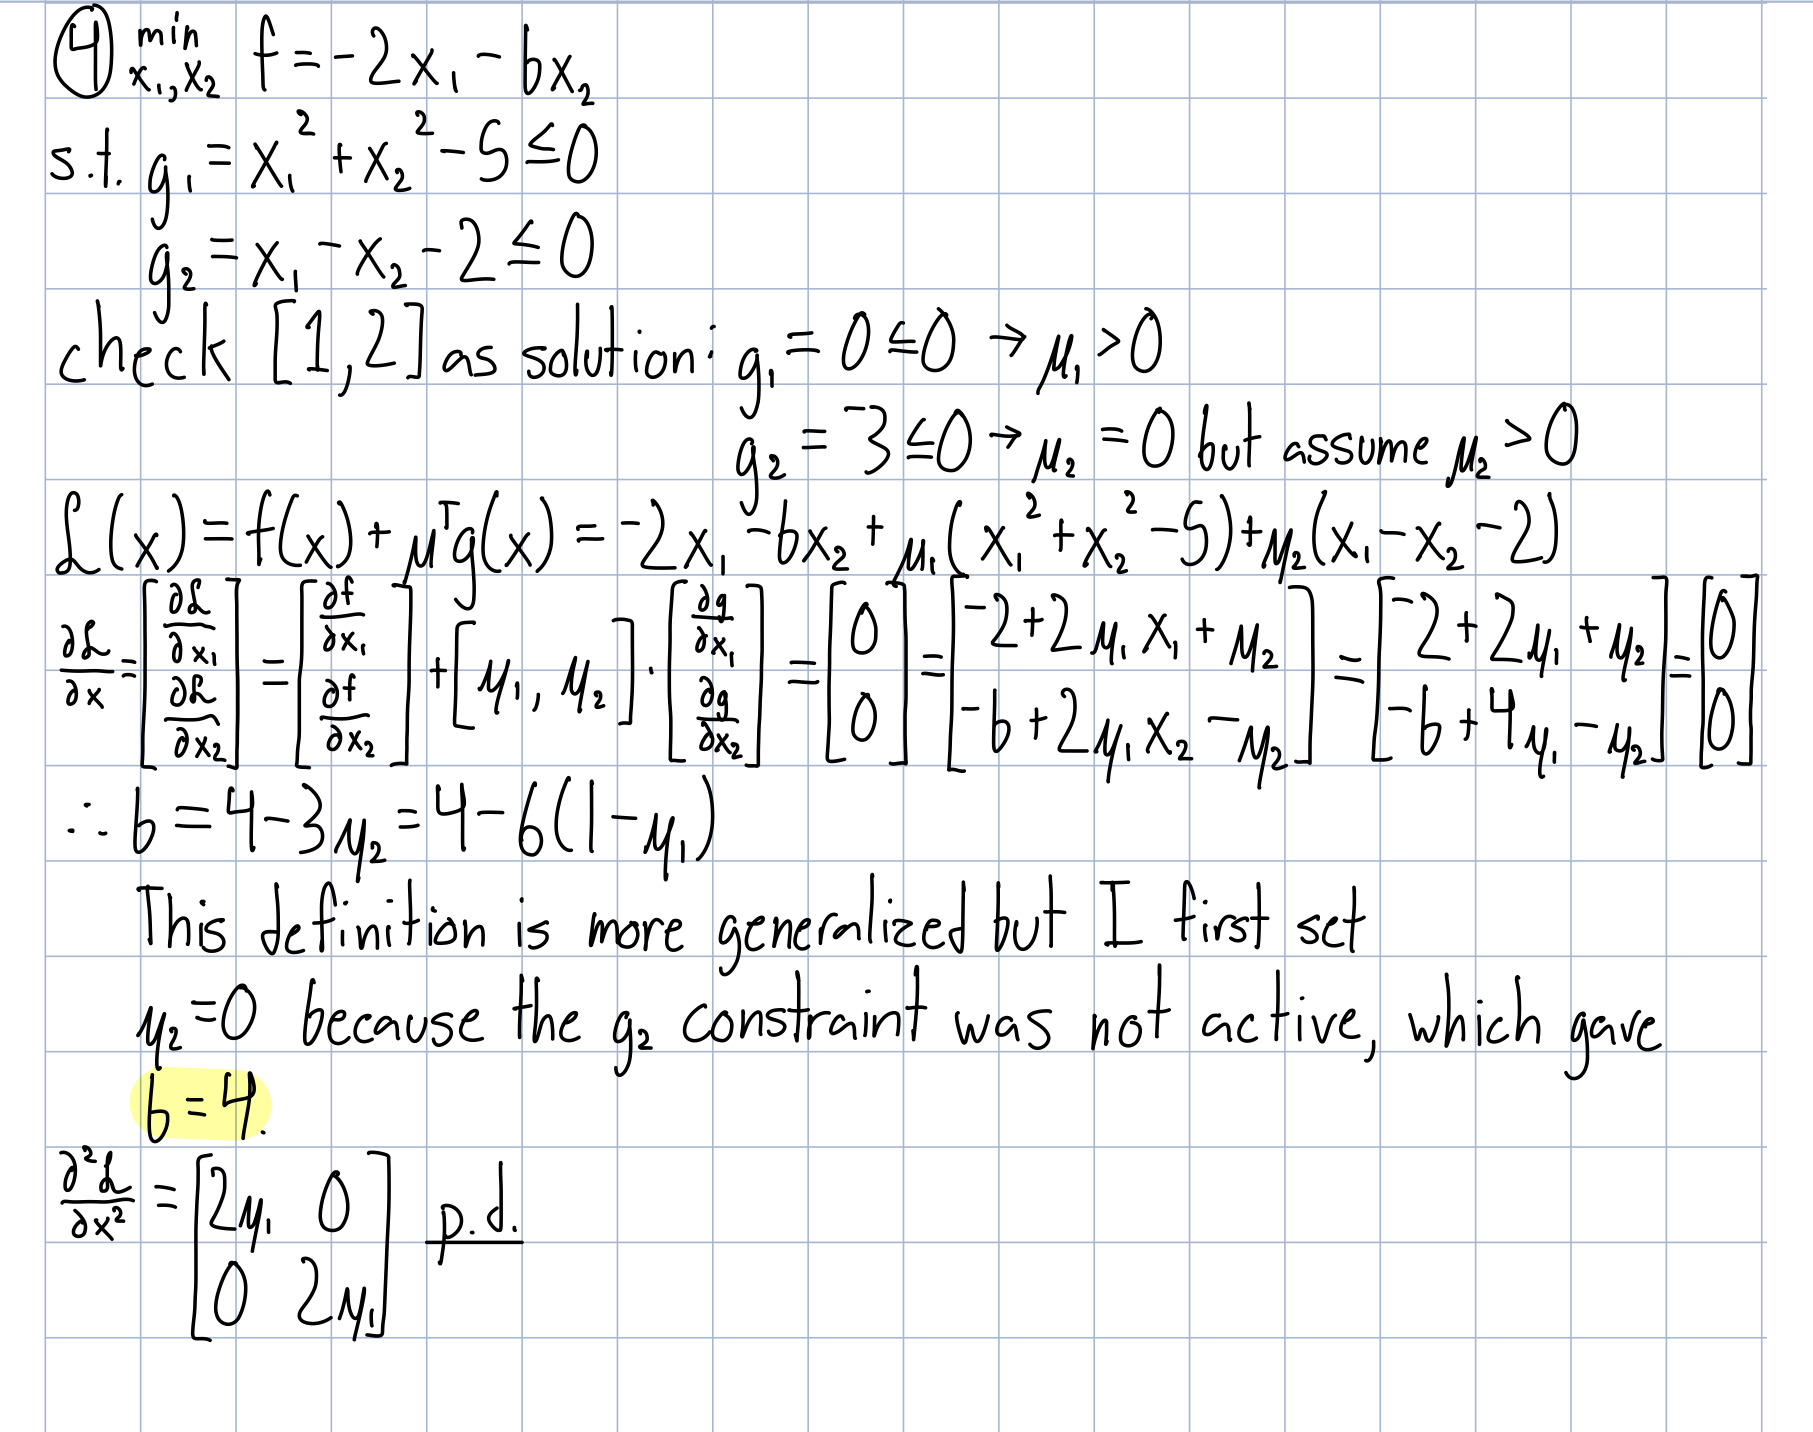 ④ min x₁,x₂ f = -2x₁ - bx₂
s.t. g₁ = x₁² + x₂² - 5 ≤ 0
g₂ = x₁ - x₂ - 2 ≤ 0
check [1,2] as solution: g₁ = 0 ≤ 0 → μ₁ > 0
g₂ = -3 ≤ 0 → μ₂ = 0 but assume μ₂ > 0
ℒ(x) = f(x) + μᵀg(x) = -2x₁ - bx₂ + μ₁(x₁² + x₂² - 5) + μ₂(x₁ - x₂ - 2)
∂ℒ/∂x = [∂ℒ/∂x₁; ∂ℒ/∂x₂] = [∂f/∂x₁; ∂f/∂x₂] + [μ₁, μ₂] · [∂g/∂x₁; ∂g/∂x₂] = [0; 0] = [-2 + 2μ₁x₁ + μ₂; -b + 2μ₁x₂ - μ₂] = [-2 + 2μ₁ + μ₂; -b + 4μ₁ - μ₂] = [0; 0]
∴ b = 4 - 3μ₂ = 4 - 6(1 - μ₁)
This definition is more generalized but I first set
μ₂ = 0 because the g₂ constraint was not active, which gave
b = 4.
∂²ℒ/∂x² = [2μ₁ 0; 0 2μ₁] p.d.